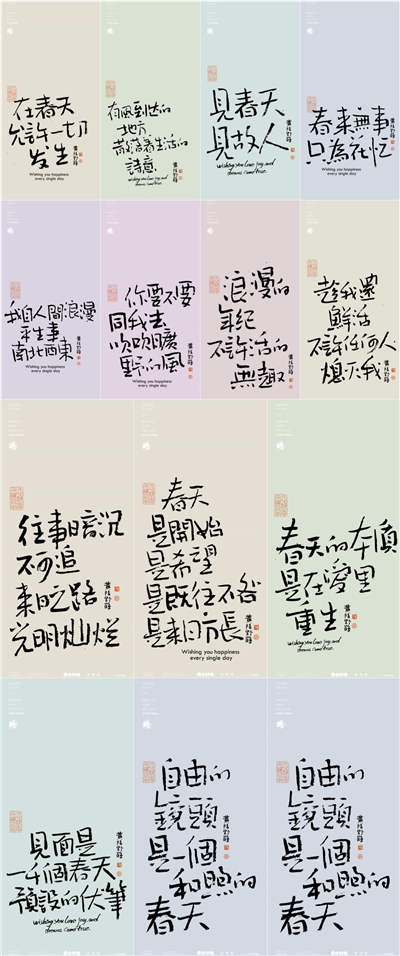 在春天
允許一切
发生
Wishing you happiness
every single day
有風到达的
地方
散落着生活的
詩意
見春天
見故人
wishing you love joy and
dreams come true.
春来無事
只為花忙
我自人間浪漫
平生事
南北西東
你要不要
同我去
吹吹曠
野的風
Wishing you happiness
every single day
浪漫的
年紀
不許活的
無趣
趁我還
鮮活
不許任何人
熄灭我
往事暗沉
不可追
来日之路
光明灿烂
春天
是開始
是希望
是既往不咎
是来日方長
Wishing you happiness
every single day
春天的本质
是在愛里
重生
wishing you love joy and
dreams come true.
見面是
一千個春天
預設的伏筆
wishing you love joy and
dreams come true.
自由的
鏡頭
是一個
和煦的
春天
自由的
鏡頭
是一個
和煦的
春天